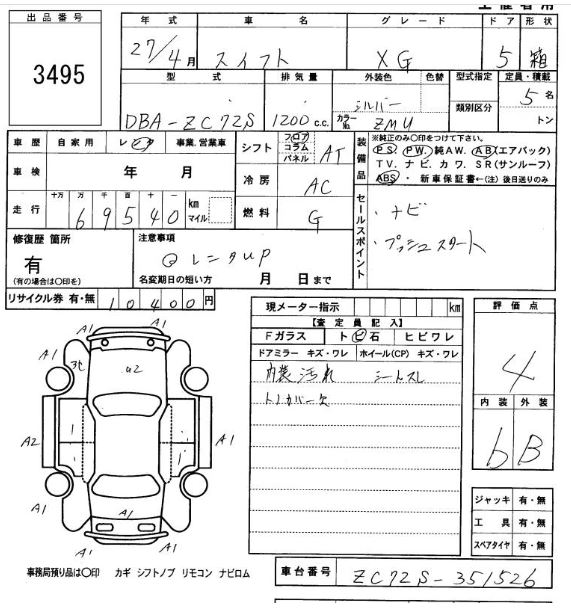 出品番号
3495
年式 車名 グレード ドア 形状
27/4月 スイフト XG 5 箱
型式 排気量 外装色 色替 型式指定 定員・積載
DBA-ZC72S 1200c.c. シルバー カラーNo. ZMU 類別区分 5名 トン
車歴 自家用 レンタ 事業.営業車
車検 年 月
走行 十万 万 千 百 十
69540 km マイル
シフト フロア コラム パネル AT
冷房 AC
燃料 G
装備品
※純正のみ○印をつけて下さい。
PS. PW. 純AW. AB(エアバック)
TV. ナビ. カワ. SR(サンルーフ)
ABS・新車保証書←(注)後日送りのみ
セールスポイント
・ナビ
・プッシュスタート
修復歴 箇所
有
(有の場合は○印を)
注意事項
レンタUP
名変期日の短い方 月 日まで
リサイクル券 有・無 10400円
現メーター指示 km
【査定員記入】
Fガラス ト ビ 石 ヒビワレ
ドアミラー キズ・ワレ ホイール(CP) キズ・ワレ
内装汚れ シートスレ
トノカバー欠
評価点
4
内装 外装
b B
ジャッキ 有・無
工具 有・無
スペアタイヤ 有・無
A1 A1
A1 U2 A1
A2 A1
A1 A1 A1
A1
事務局預り品は○印 カギ シフトノブ リモコン ナビロム
車台番号 ZC72S-351526